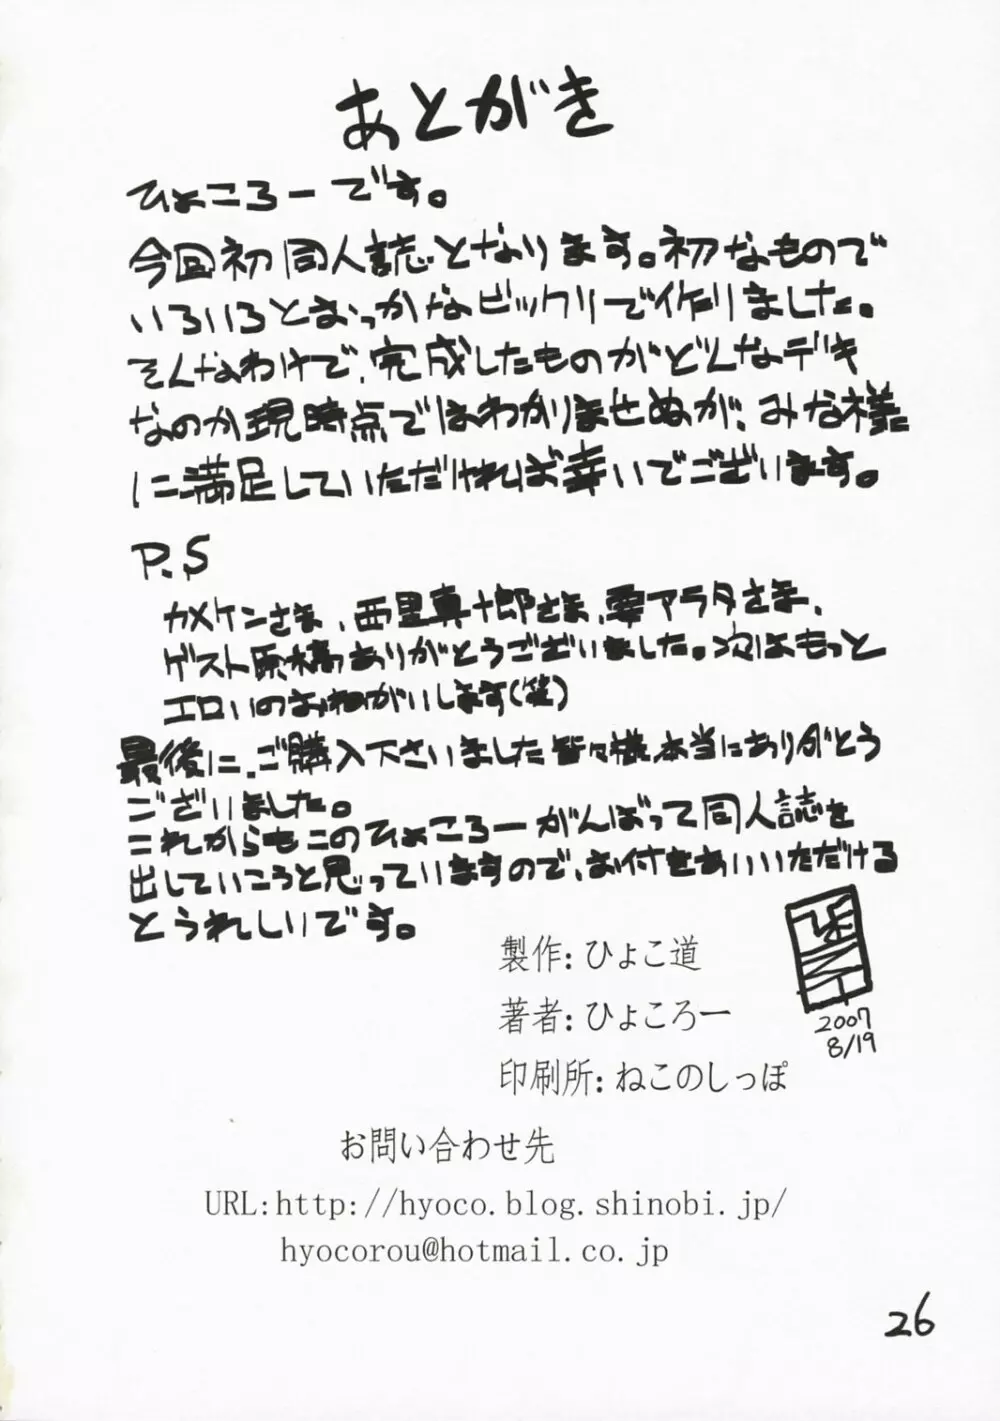 あとがき
ひょころーです。
今回初同人誌となります。初なもので
いろいろとおっかなビックリで作りました。
そんなわけで、完成したものがどんなデキ
なのか現時点ではわかりませぬが、みな様
に満足していただければ幸いでございます。
P.S
カメケンさま、西里真十郎さま、雫アラタさま、
ゲスト原稿ありがとうございました。次はもっと
エロいのおねがいします(笑)
最後に、ご購入下さいました皆々様本当にありがとう
ございました。
これからもこのひょころーがんばって同人誌を
出していこうと思っていますので、お付きあいいただける
とうれしいです。
製作:ひょこ道
著者:ひょころー
2007
8/19
印刷所:ねこのしっぽ
お問い合わせ先
URL:http://hyoco.blog.shinobi.jp/
hyocorou@hotmail.co.jp
26